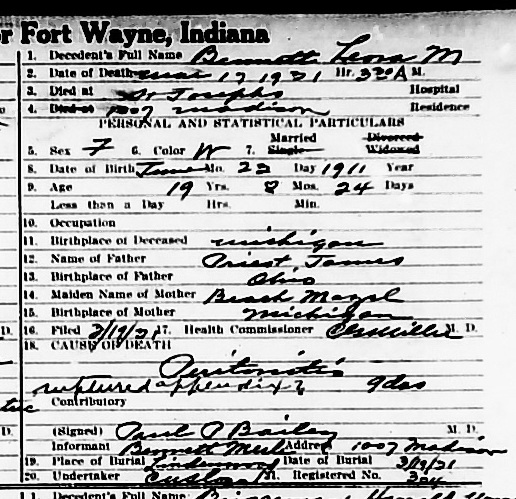 r Fort Wayne, Indiana
1. Decedent's Full Name Bennett Leora M
2. Date of Death Mar 17 1931 Hr. 320 A M.
3. Died at St Josephs Hospital
4. Died at 1007 Madison Residence
PERSONAL AND STATISTICAL PARTICULARS
Married Divorced
5. Sex F 6. Color W 7. Single Widowed
8. Date of Birth June Mo. 23 Day 1911 Year
9. Age 19 Yrs. 8 Mos. 24 Days
Less than a Day Hrs. Min.
10. Occupation
11. Birthplace of Deceased Michigan
12. Name of Father Priest James
13. Birthplace of Father Ohio
14. Maiden Name of Mother Beach
15. Birthplace of Mother Michigan
D. 16. Filed 3/19/31 17. Health Commissioner M. D.
18. CAUSE OF DEATH
Peritonitis
ruptured appendix 9 das
Contributory
D. (Signed) Paul P Bailey M. D.
Informant Bennett Merl Address 1007 Madison
19. Place of Burial Lindenwood Date of Burial 3/19/31
D. 20. Undertaker 21. Registered No. 304
1. Decedent's Full Name